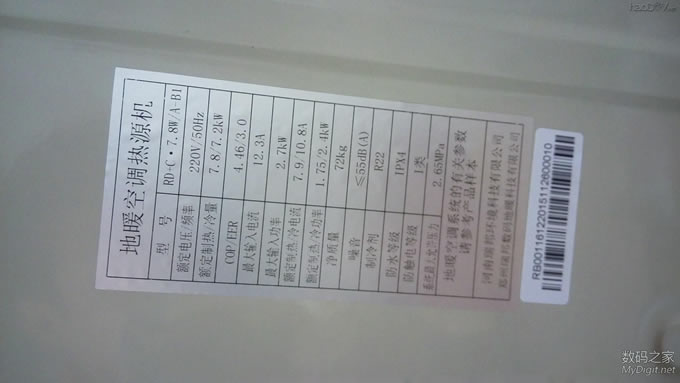 地暖空调热源机
型 号 RD-C·7.8W/A-B1
额定电压/频率 220V/50Hz
额定制热/冷量 7.8/7.2kW
COP/EER 4.46/3.0
最大输入电流 12.3A
最大输入功率 2.7kW
额定制热/冷电流 7.9/10.8A
额定制热/冷功率 1.75/2.4kW
净质量 72kg
噪音 ≤55dB(A)
制冷剂 R22
防水等级 IPX4
防触电等级 I类
系统最大允许压力 2.65MPa
地暖空调系统的有关参数
请参考产品样本
河南瑞邦环境科技有限公司
郑州瑞邦数码地暖科技有限公司
RB00116122015112600010
数码之家
MyDigit.net